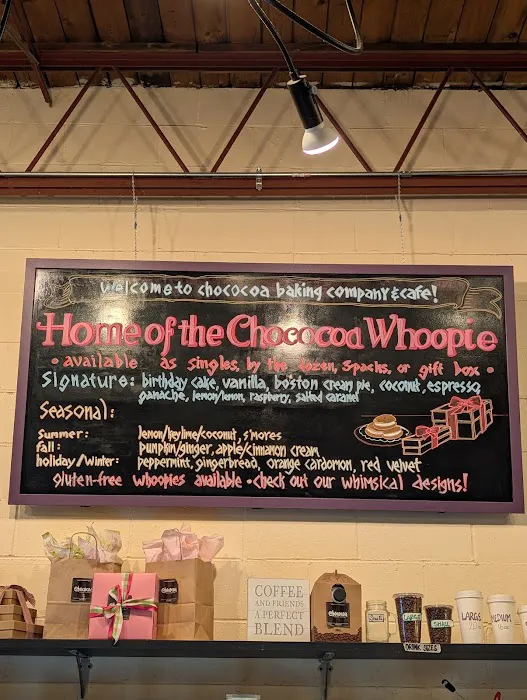 welcome to chococoa baking company & cafe!
Home of the Chococoa Whoopie
• available as singles, by the dozen, 5packs, or gift box •
Signature: birthday cake, vanilla, boston cream pie, coconut, espresso
ganache, lemon/lemon, raspberry, salted caramel
Seasonal:
Summer: lemon/keylime/coconut, s'mores
fall: pumpkin/ginger, apple/cinnamon cream
holiday/Winter: peppermint, gingerbread, orange cardomon, red velvet
gluten-free whoopies available • check out our whimsical designs!
COFFEE
AND FRIENDS
A PERFECT
BLEND
LARGE
SMALL
LARGE
MEDIUM
DRINK SIZES